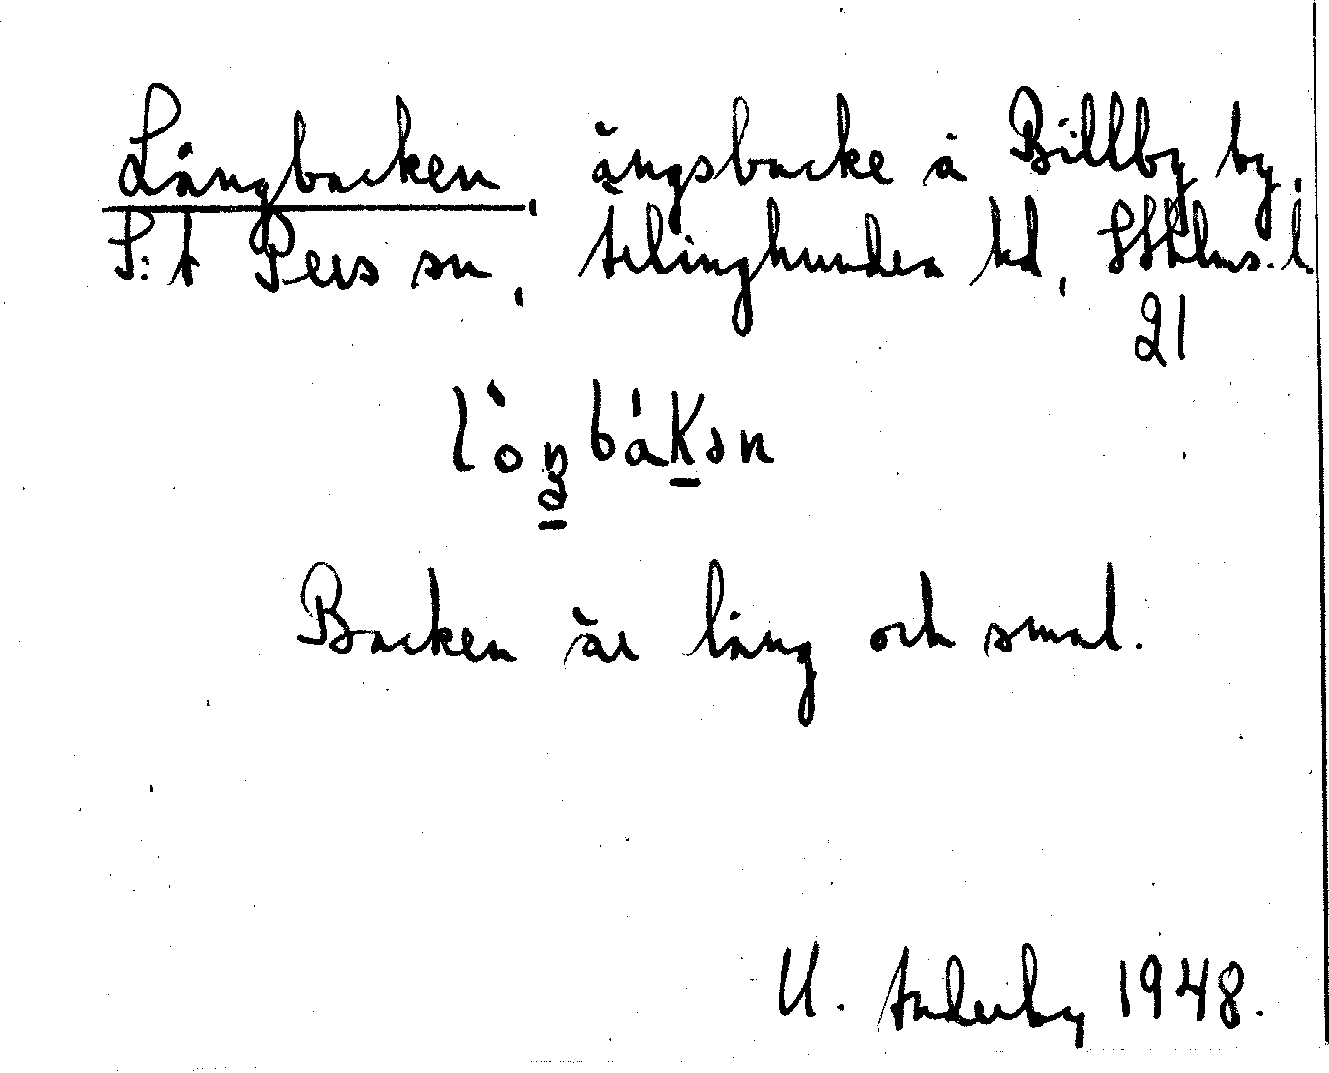 Långbacken, ängsbacke å Billby by,
S:t Pers sn, Ärlinghundra hd, Sthlms. l.
21
Backen är lång och smal.
U. 1948.